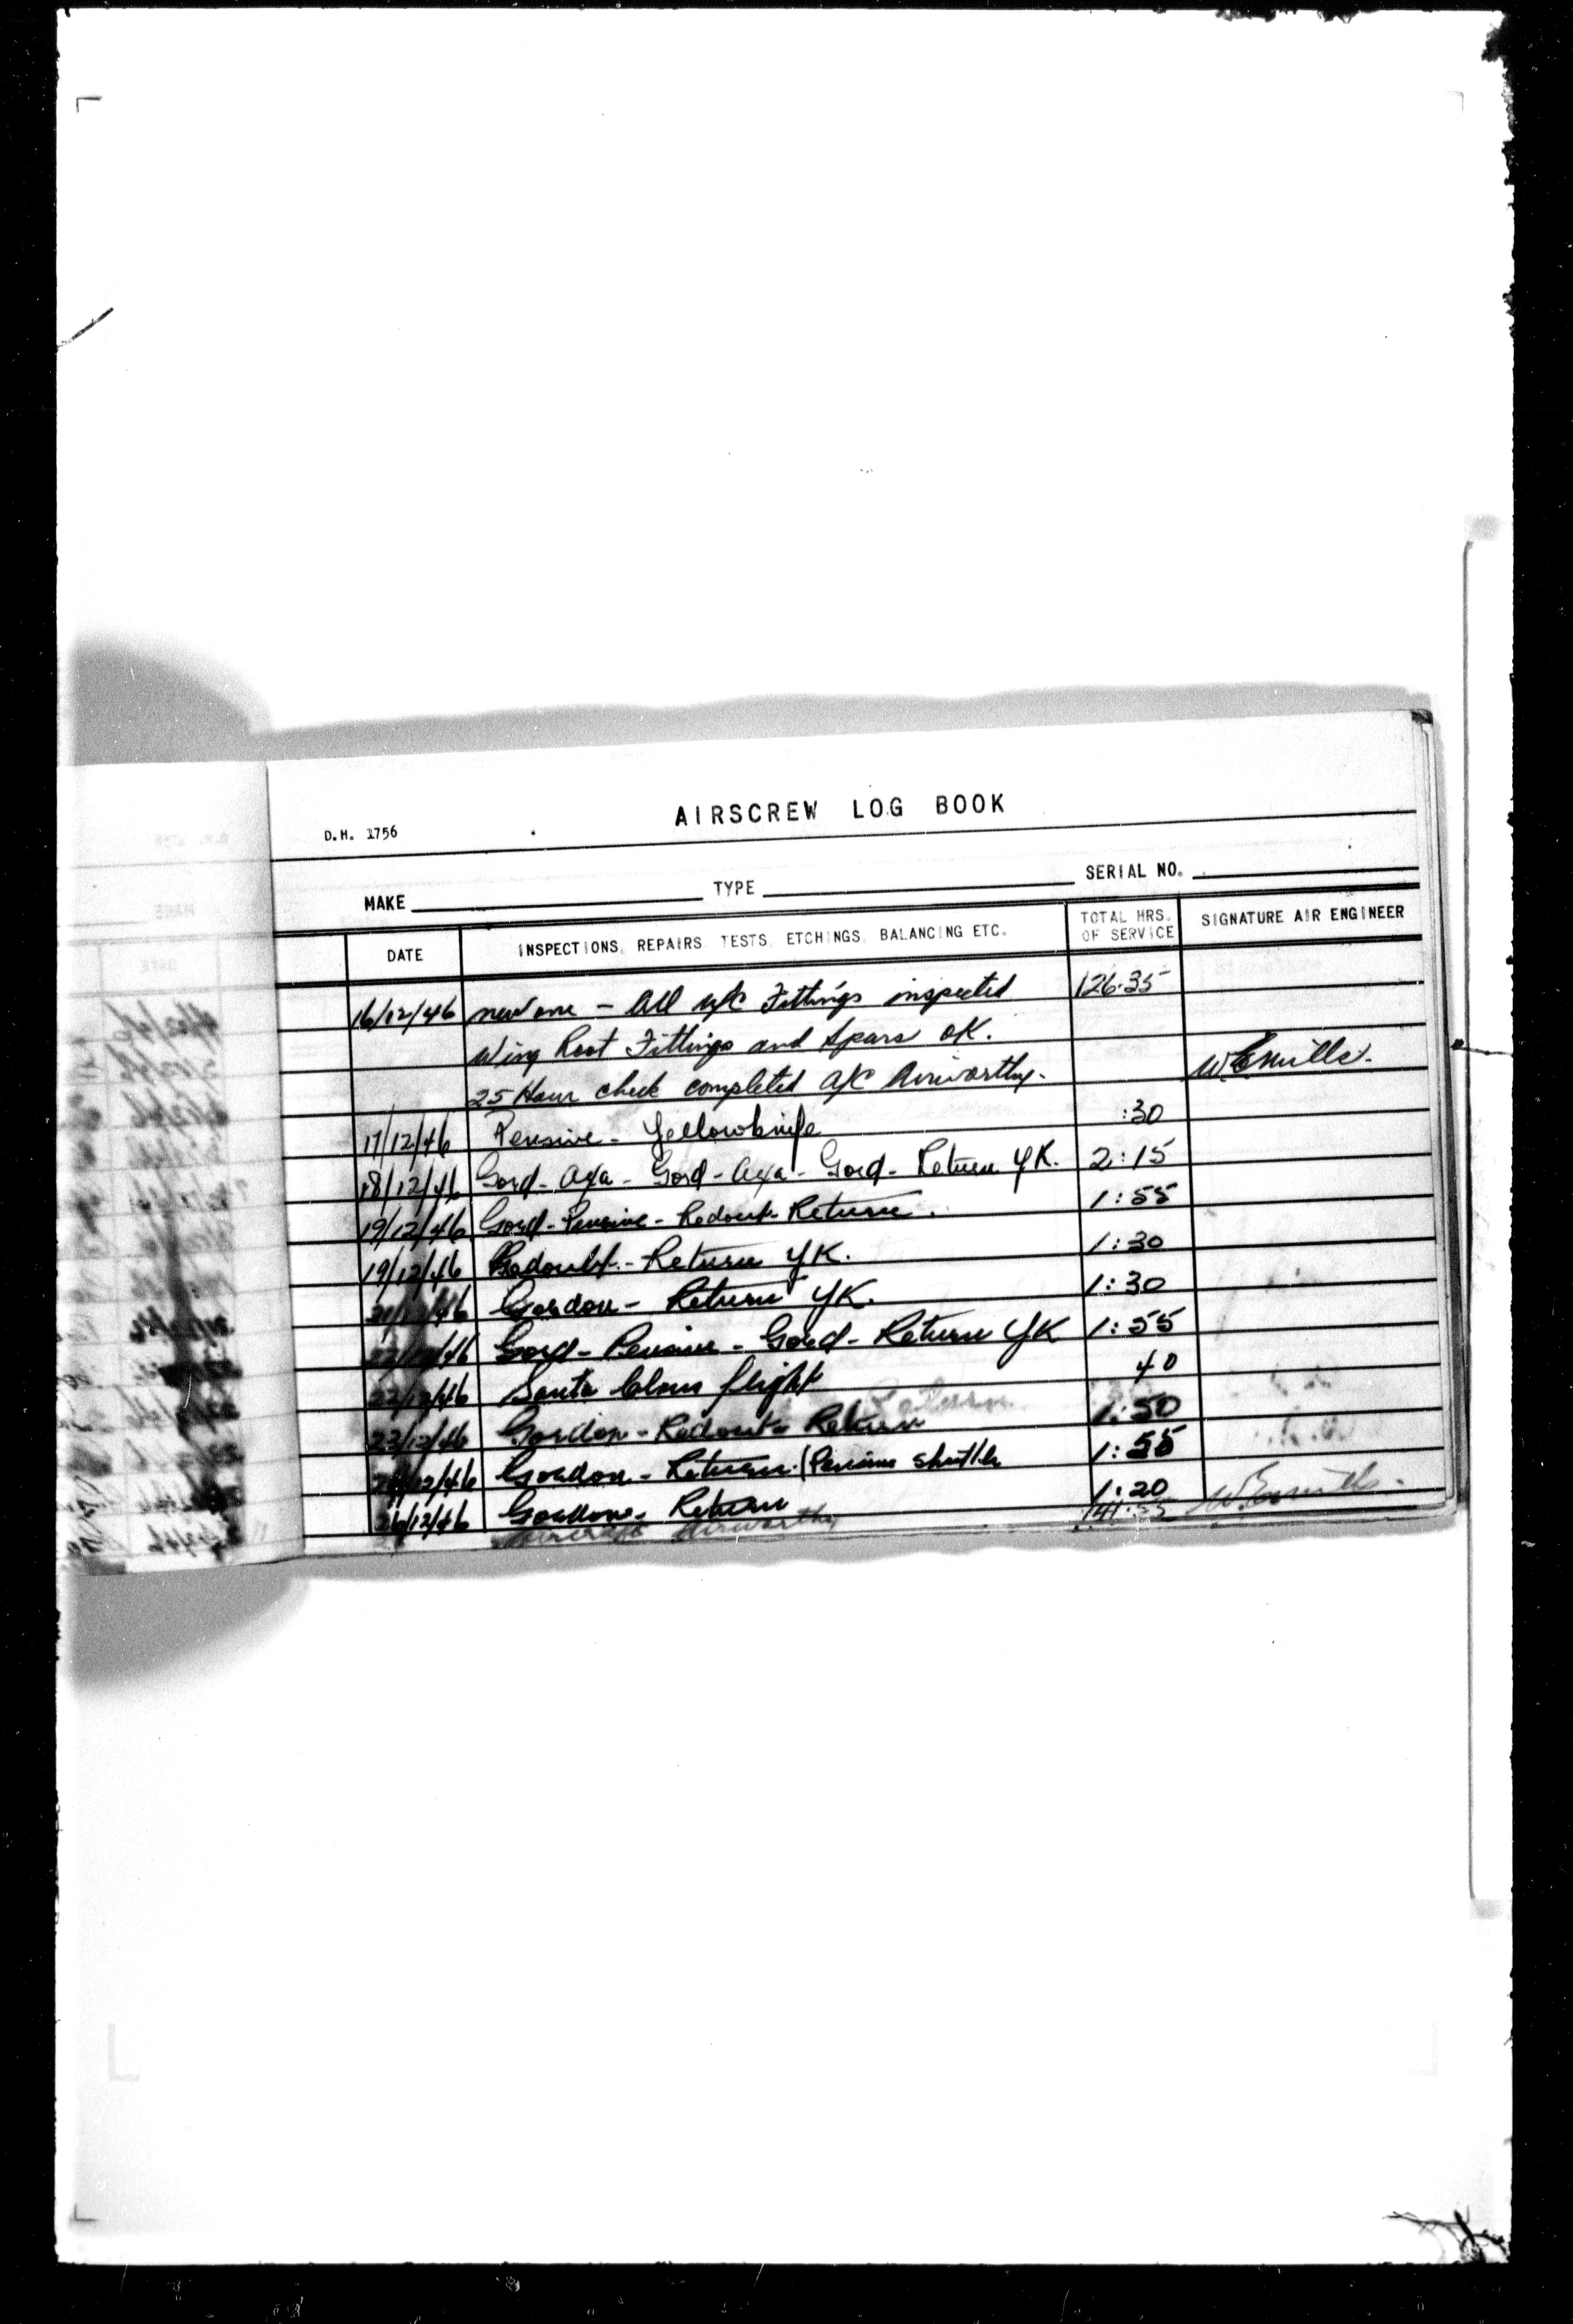 D.H. 1756
AIRSCREW LOG BOOK
MAKE TYPE SERIAL NO.
DATE INSPECTIONS, REPAIRS, TESTS, ETCHINGS, BALANCING ETC. TOTAL HRS. OF SERVICE SIGNATURE AIR ENGINEER
16/12/46 new one - All u/c Fittings inspected 126:35
Wing Root Fittings and Spars OK.
25 Hour check completed A/C Airworthy.
17/12/46 Pensive - Yellowknife :30
18/12/46 Gord - Aya - Gord - Aya - Gord - Return YK. 2:15
19/12/46 Gord - Pensive - Redout - Return. 1:55
19/12/46 Redoubt - Return YK. 1:30
21/12/46 Gordon - Return YK. 1:30
22/12/46 Gord - Pensive - Gord - Return YK 1:55
22/12/46 Santa Claus flight 40
23/12/46 Gordon - Redout - Return 1:50
/12/46 Gordon - Return (Pensive shuttle 1:55
26/12/46 Gordon - Return 1:20
Aircraft Airworthy 141:55